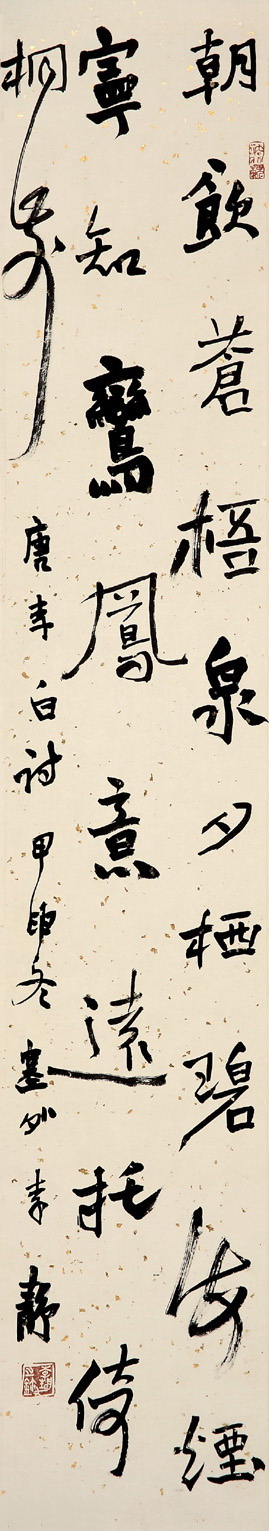 朝飲蒼梧泉夕栖碧海煙
寧知鸞鳳意遠托倚
桐前
唐李白詩甲申冬塞外李靜